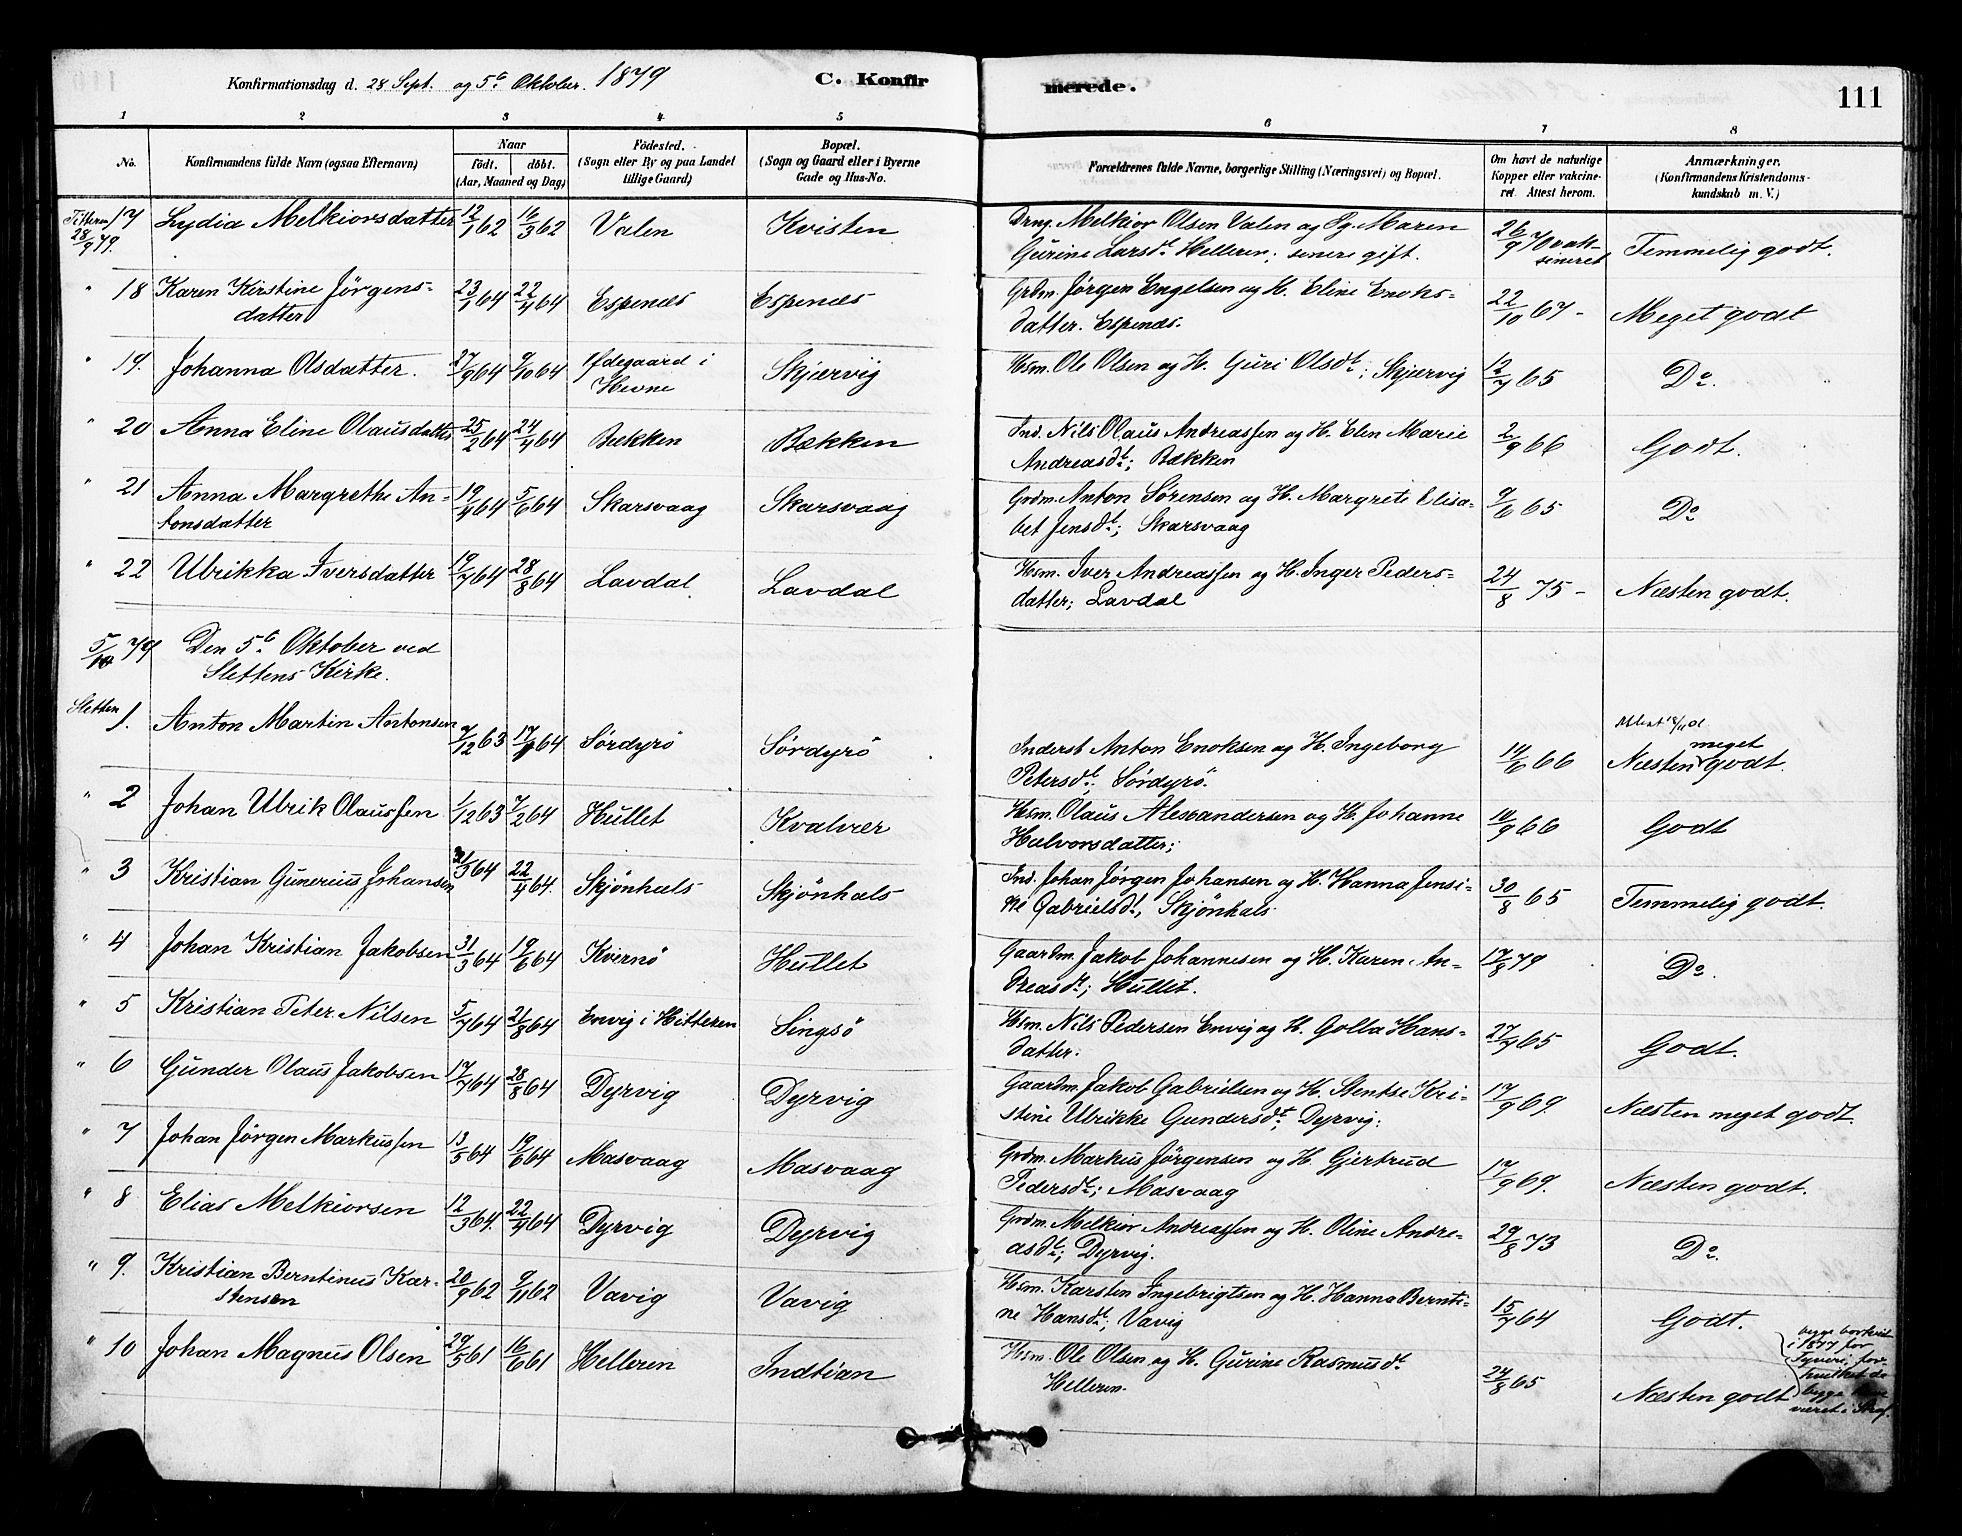 Konfirmationsdag d. 28 Sept. og 5te Oktober. 1879
C. Konfirmerede.
111
1 2 3 4 5 6 7 8
No.
Konfirmandens fulde Navn (ogsaa Efternavn)
Naar
födt. döbt.
(Aar, Maaned og Dag)
Födested.
(Sogn eller By og paa Landet
tillige Gaard)
Bopæl.
(Sogn og Gaard eller i Byerne
Gade og Hus-No.
Forældrenes fulde Navne, borgerlige Stilling (Næringsvei) og Bopæl.
Om havt de naturlige
Kopper eller vakcine-
ret. Attest herom.
Anmærkninger.
(Konfirmandens Kristendoms-
kundskab m. V.)
28/9 79. 17 Lydia Melkiorsdatter 12/1 62 16/3 62 Valen Kvisten Drng. Melkior Olsen Valen og Pg. Maren
Gurine Larsdt. Helleren; senere gift. 26/9 70 vak-
sineret Temmelig godt.
" 18 Karen Kirstine Jörgens-
datter 23/1 64 22/4 64 Espenæs Espenæs Grdm. Jörgen Engelsen og H. Eline Enoks-
datter. Espenæs. 22/10 67 - Meget godt
" 19. Johanna Olsdatter. 27/9 64 9/10 64 Ödegaard i
Hevne Skjærvig Hsm. Ole Olsen og H. Guri Olsdt.; Skjervig 12/7 65 Do.
" 20 Anna Eline Olausdatter 25/2 64 24/4 64 Bækken Bækken Ind. Nils Olaus Andreassen og H. Elen Marie
Andreasdt.; Bækken 2/9 66 Godt.
" 21 Anna Margrethe An-
tonsdatter 19/4 64 5/6 64 Skarsvaag Skarsvaag Grdm. Anton Sörensen og H. Margrete Elisa-
bet Jensdt.; Skarsvaag 9/6 65 Do
" 22 Ulrikka Iversdatter 19/7 64 28/8 64 Lavdal. Lavdal Hsm. Iver Andreassen og H. Inger Peders-
datter; Lavdal 24/8 75 - Næsten godt.
5/10 79 Den 5te Oktober ved
Slettens Kirke.
Sletten 1. Anton Martin Antonsen 9/12 63 17/1 64 Sördyrö Sördyrö Inderst Anton Enoksen og H. Ingeborg
Petersdt.; Sördyrö. 14/6 66 Næsten meget godt.
" 2 Johan Ulrik Olaussen 1/12 63 7/2 64 Hullet Kvalvær Hsm. Olaus Alexandersen og H. Johanne
Halvorsdatter; 10/9 66 Godt
" 3 Kristian Gunerius Johansen 31/3 64 22/4 64. Skjönhals Skjönhals Ind. Johan Jörgen Johansen og H. Hanna Jensi-
ke Gabrielsdt., Skjönhals. 30/8 65 Temmelig godt.
" 4 Johan Kristian Jakobsen 31/3 64 19/6 64 Kvernö Hullet Gaardm. Jakob Johannesen og H. Karen An-
dreasdt.; Hullet. 17/8 79 Do.
" 5 Kristian Peter Nilsen 5/7 64 21/8 64 Envig i Hitteren Singsö Hsm. Nils Pedersen Envig og H. Golla Hans-
datter. 27/9 65 Godt.
" 6 Gunder Olaus Jakobsen 17/7 64 28/8 64 Dyrvig Dyrvig Gaardm. Jakob Gabrielsen og H. Stentse Kri-
stine Ulrikke Gundersdt., Dyrvig. 17/9 69. Næsten meget godt.
" 7 Johan Jörgen Markussen 13/5 64 19/6 64 Masvaag Masvaag Grdm. Markus Jörgensen og H. Gjertrud
Pedersdt.; Masvaag 17/9 69. Næsten godt.
" 8 Elias Melkiorsen 12/3 64. 22/4 64 Dyrvig Dyrvig Grdm. Melkior Andreassen og H. Oline Andre-
asdt.; Dyrvig. 29/8 73 Do.
" 9. Kristian Berntinus Kar-
stensen 20/9 62 9/11 62 Vavig Vavig Hsm. Karsten Ingebrigtsen og H. Hanna Bernti-
ne Hansdt.; Vavig 15/7 64 Godt.
" 10 Johan Magnus Olsen 29/5 61 16/6 61 Helleren Indtian Hsm. Ole Olsen og H. Gurine Rasmusdt.
Helleren. 24/8 65 Næsten godt
begge bortvist
i 1877 for
Tyveri, for
hvilket de
begge have
været i Straf.